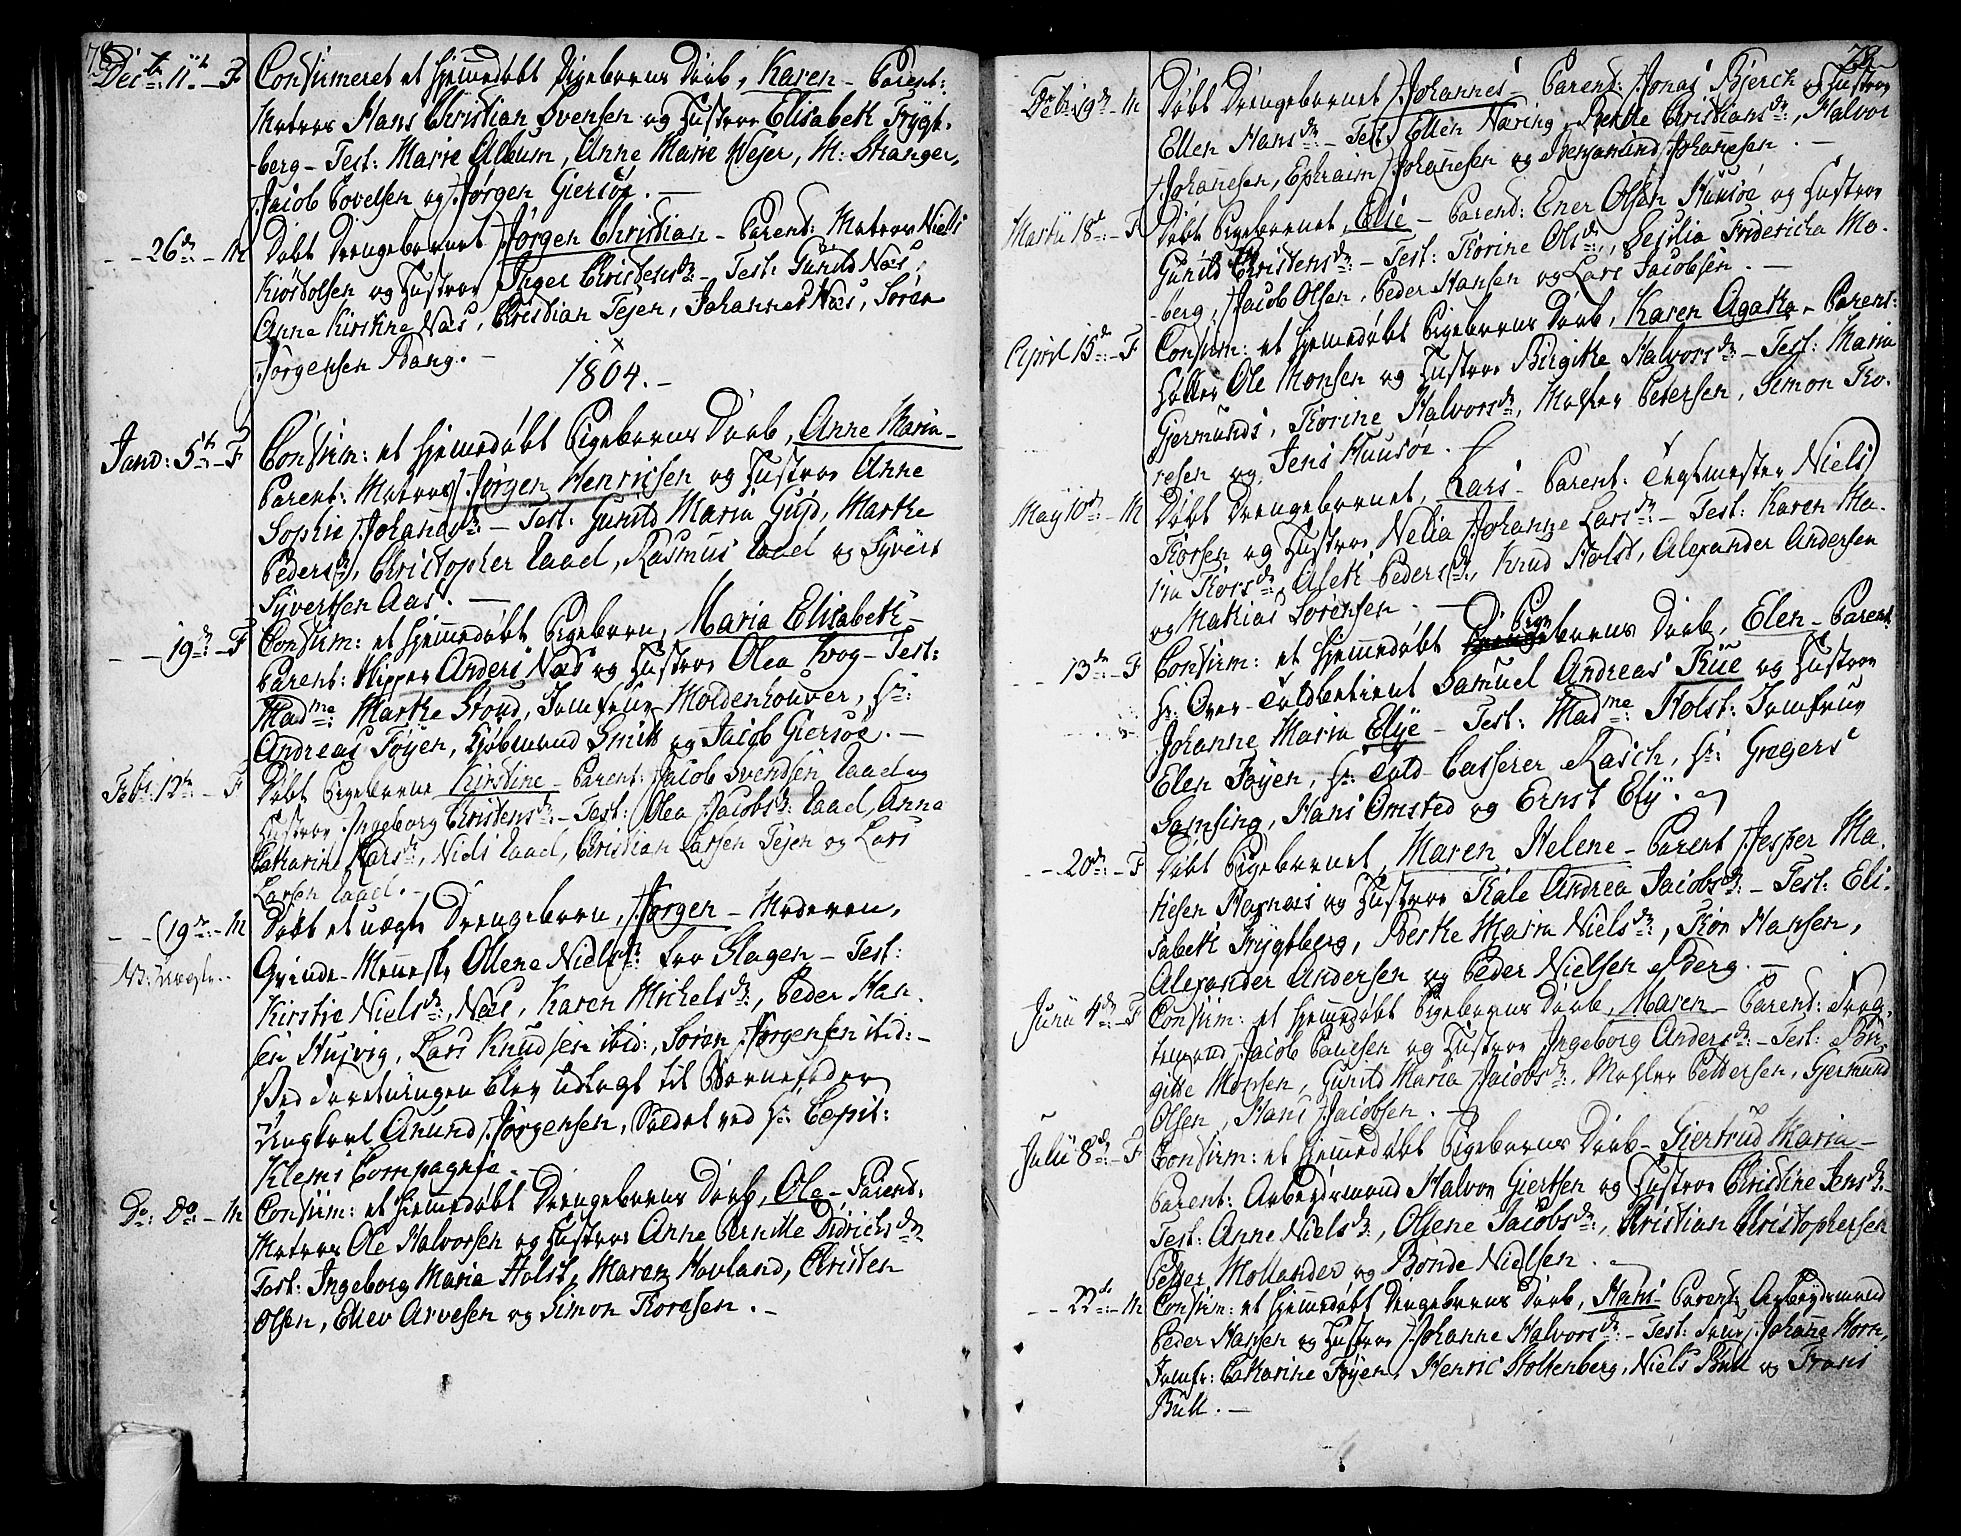 78.
Decbr 11te – F Confirmeret et hjemmedøbt Pigebarns Daab, Karen – Parent:
Matros Hans Christian Svensen og Hustroe Elisabeth Frygt-
berg – Test: Marie Album, Anne Marie Wejer, M: Stranger,
Jacob Povelsen og Jørgen Giersøe. –
– – 26de – M Døbt Drengebarnet Jørgen Christian – Parent: Matros Niels
Kiøstolsen og Hustroe Inger Christensdr: – Test: Gunild Næs,
Anne Kirstine Næs, Christian Fejen, Johannes Næs, Søren
Jørgensen Bang. –
1804. –
Janv: 5te – F Confirm: et hjemmedøbt Pigebarns Daab, Anne Maria –
Parent: Matros Jørgen Henrichsen og Hustroe Anne
Sophie Johansdr: – Test: Gunild Maria Gujd, Marthe
Pedersdr, Christopher Aael, Rasmus Aael og Syvert
Syvertsen Aas. –
– – 19de – F Confirm: et hjemmedøbt Pigebarn, Maria Elisabeth –
Parent: Skipper Anders Næs og Hustroe Olea Krog – Test:
Madme: Marthe Stoud, Jomfrue Moldenhouver, Hr:
Andreas Føyen, Kjøbmand Smith og Jacob Giersøe. –
Febr: 12te – F Døbt Pigebarne Kirstine – Parent: Jacob Svendsen Aael og
Hustroe Ingeborg Christensdr: – Test: Olea Jacobsdr: Aael, Anne
Catharine Larsdr:, Niels Aael, Christian Larsen Fejen og Lars
Larsen Aael. –
– – 19de – M Døbt et uægte Drengebarn, Jørgen – Moderen,
NB: Uægte. Qvinde-Menneske Ollene Nielsdr: fra Slagen – Test:
Kirstie Nielsdr:, Næs, Karen Michelsdr:, Peder Han-
sen Husvig, Lars Knudsen ibid:, Søren Jørgensen ibid: –
Ved Forretningen blev Udlagt til Barnefader
Ungkarl Anund Jørgensen, Soldat ved Hr: Capit:
Klems Compagnie –
Do: Do – M Confirm: et hjemmedøbt Drengebarns Daab, Ole – Parent:
Matros Ole Halvorsen og Hustroe Anne Pernille Didrichsdr
Test: Ingeborg Maria Holst, Maren Hovland, Christen
Olsen, Ellev Arvesen og Simon Thoresen. –
79.
Febr: 19de – M Døbt Drengebarnet Johannes – Parent: Jonas Bjerch og Hustroe
Ellen Hansdr: – Test: Ellen Næring, Berthe Christiansdr:, Halvor
Johannesen, Ephraim Johannesen og Johannesen. –
Martii 18de – F Døbt Pigebarnet, Elie – Parent: Ener Olsen Huusøe og Hustroe
Gunild Christensdr: – Test: Thorine Olsdr:, Secilia Fridericha Mo-
berg, Jacob Olsen, Peder Hansen og Lars Jacobsen. –
April 15de – F Confirm: et hjemmedøbt Pigebarns Daab, Karen Agatha – Parent:
Ole Monsen og Hustroe Birgithe Halvorsdr: – Test: Maria
Gjermunds, Thorine Halvorsdr, Petersen, Simon Tho-
resen og Jens Huusøe. –
May 10de – M Døbt Drengebarnet, Lars – Parent: Teglmester Niels
Thorsen og Hustroe Nelia Johanne Larsdr: – Test: Karen Ma-
ria Thorsdr, Aleth Pedersdr:, Knud Holst, Alexander Andersen
og Mathias Sørensen. –
– – 13de – F Confirm: et hjemmedøbt Pigebarns Daab, Elen – Parent:
Hr: Over-Toldbetient Samuel Andreas Rüe og Hustroe
Johanne Maria Elye – Test: Madme: Holst: Jomfrue
Elen Føyen, Hr: Told-Casserer Rasch, Hr: Gregers
Samsing, Hans Omsted og Ernst Ely. –
– – 20de – F Døbt Pigebarnet, Maren Helene – Parent: Jesper Ma-
thesen Hognæs og Hustroe Kale Andrea Jacobsdr: – Test: Eli-
sabeth Frygtberg, Berthe Maria Nielsdr:, Thor Hansen,
Alexander Andersen og Peder Nielsen Aberg. –
Junii 4de – F Confirm: et hjemmedøbt Pigebarns Daab, Maren – Parent: Drag-
temand Jacob Paulsen og Hustroe Ingeborg Andersdr: – Test: Bir-
gitte Monsen, Gunild Maria Jacobsdr:, Pettersen, Gjermund
Olsen, Hans Jacobsen. –
Julii 8de – F Confirm: et hjemmedøbt Pigebarns Daab – Giertrud Maria –
Parent: Arbeydsmand Halvor Giertsen og Hustroe Christine Jensdr: –
Test: Anne Nielsdr, Ollene Jacobsdr:, Christian Christophersen
Petter Mollander og Bonde Nielsen. –
– – 22de – M Confirm: et hjemmedøbt Drengebarns Daab, Hans – Parent: Arbeydsmand
Peder Hansen og Hustroe Johanne Halvorsdr: – Test: Frue Johanne Horn,
Jomfr: Catharine Føyen, Henric Stoltenberg, Niels Bull og Frans
Bull. –